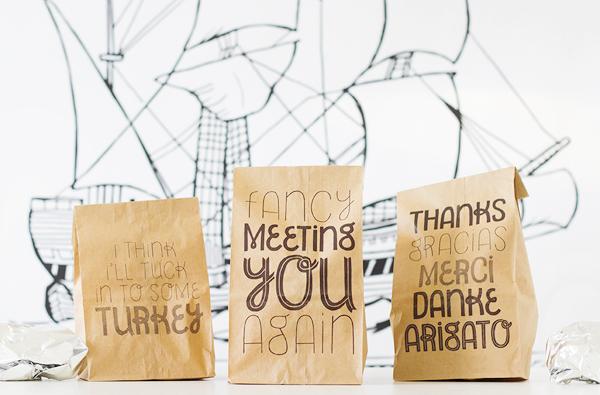 I THINK
I'LL TUCK
IN TO SOME
TURKEY
fANCY
MEETING
YOU
AGAIN
THANKS
GRACIAS
MERCI
DANKE
ARIGATO